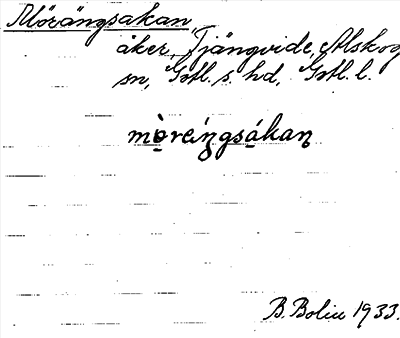 Mörängsakan,
åker, Tjängvide, Alskog
sn, Gotl. s. hd, Gotl. l.
mòreíŋgsákan
B. Bolin 1933.